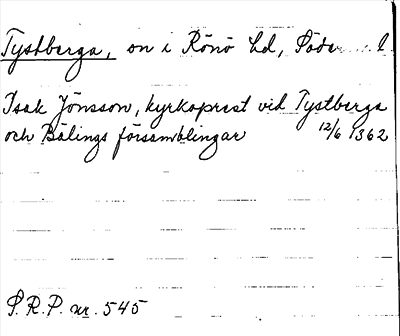 Tystberga, sn i Rönö hd, Söde
Isak Jönsson, kyrkoprest vid Tystberga
och Bälings församblingar 12/6 1362
S.R.P. nr. 545